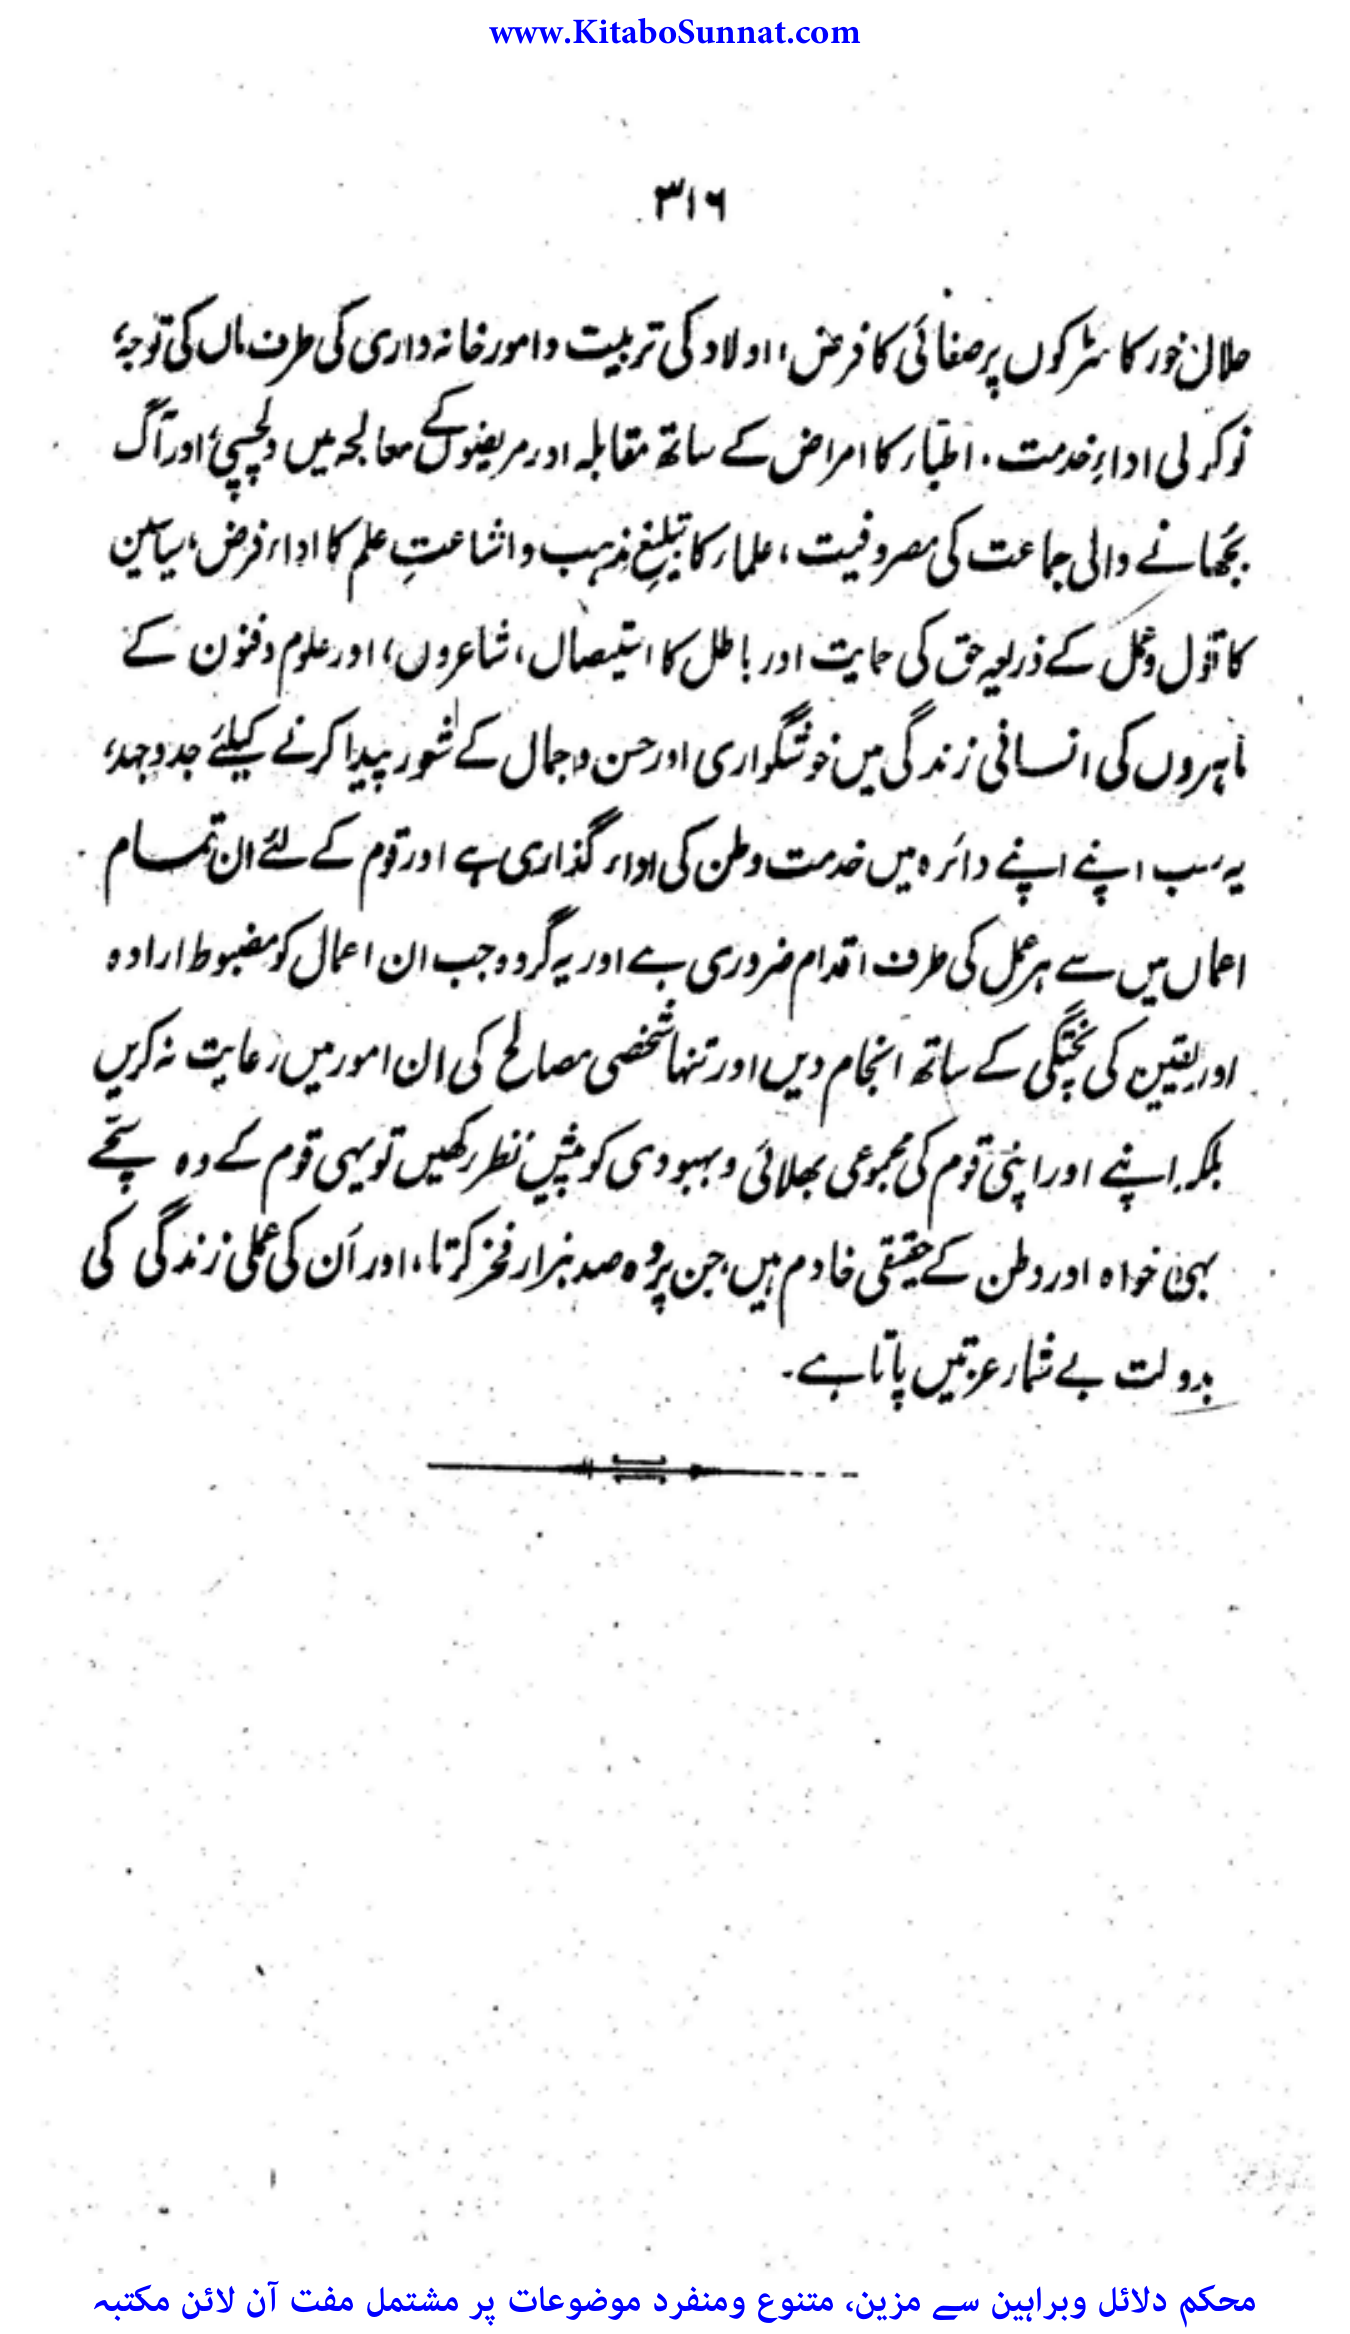 www.KitaboSunnat.com
۳۱۶
حلال خور کا سڑکوں پر صفائی کا فرض، اولاد کی تربیت و امور خانہ داری کی طرف ماں کی توجہ،
نوکر کی اداءِ خدمت، اطباء کا امراض کے ساتھ مقابلہ اور مریضوں کے معالجہ میں دلچسپی، اور آگ
بجھانے والی جماعت کی مصروفیت، علماء کا تبلیغِ مذہب و اشاعتِ علم کا اداء فرض، سیاسین
کا قول و عمل کے ذریعہ حق کی حمایت اور باطل کا استیصال، شاعروں، اور علوم و فنون کے
ماہروں کی انسانی زندگی میں خوشگواری اور حسن و جمال کے شعور پیدا کرنے کیلئے جدوجہد،
یہ سب اپنے اپنے دائرہ میں خدمت وطن کی اداء گذاری ہے اور قوم کے لئے ان تمام
اعمال میں سے ہر عمل کی طرف اقدام ضروری ہے اور یہ گروہ جب ان اعمال کو مضبوط ارادہ
اور یقین کی پختگی کے ساتھ انجام دیں اور تنہا شخصی مصالح کی ان امور میں رعایت نہ کریں
بلکہ اپنے اور اپنی قوم کی مجموعی بھلائی و بہبودی کو پیشِ نظر رکھیں تو یہی قوم کے وہ سچے
بہی خواہ اور وطن کے حقیقی خادم ہیں، جن پر وہ صد ہزار فخر کرتا، اور اُن کی عملی زندگی کی
بدولت بے شمار عزتیں پاتا ہے۔
محکم دلائل وبراہین سے مزین، متنوع ومنفرد موضوعات پر مشتمل مفت آن لائن مکتبہ